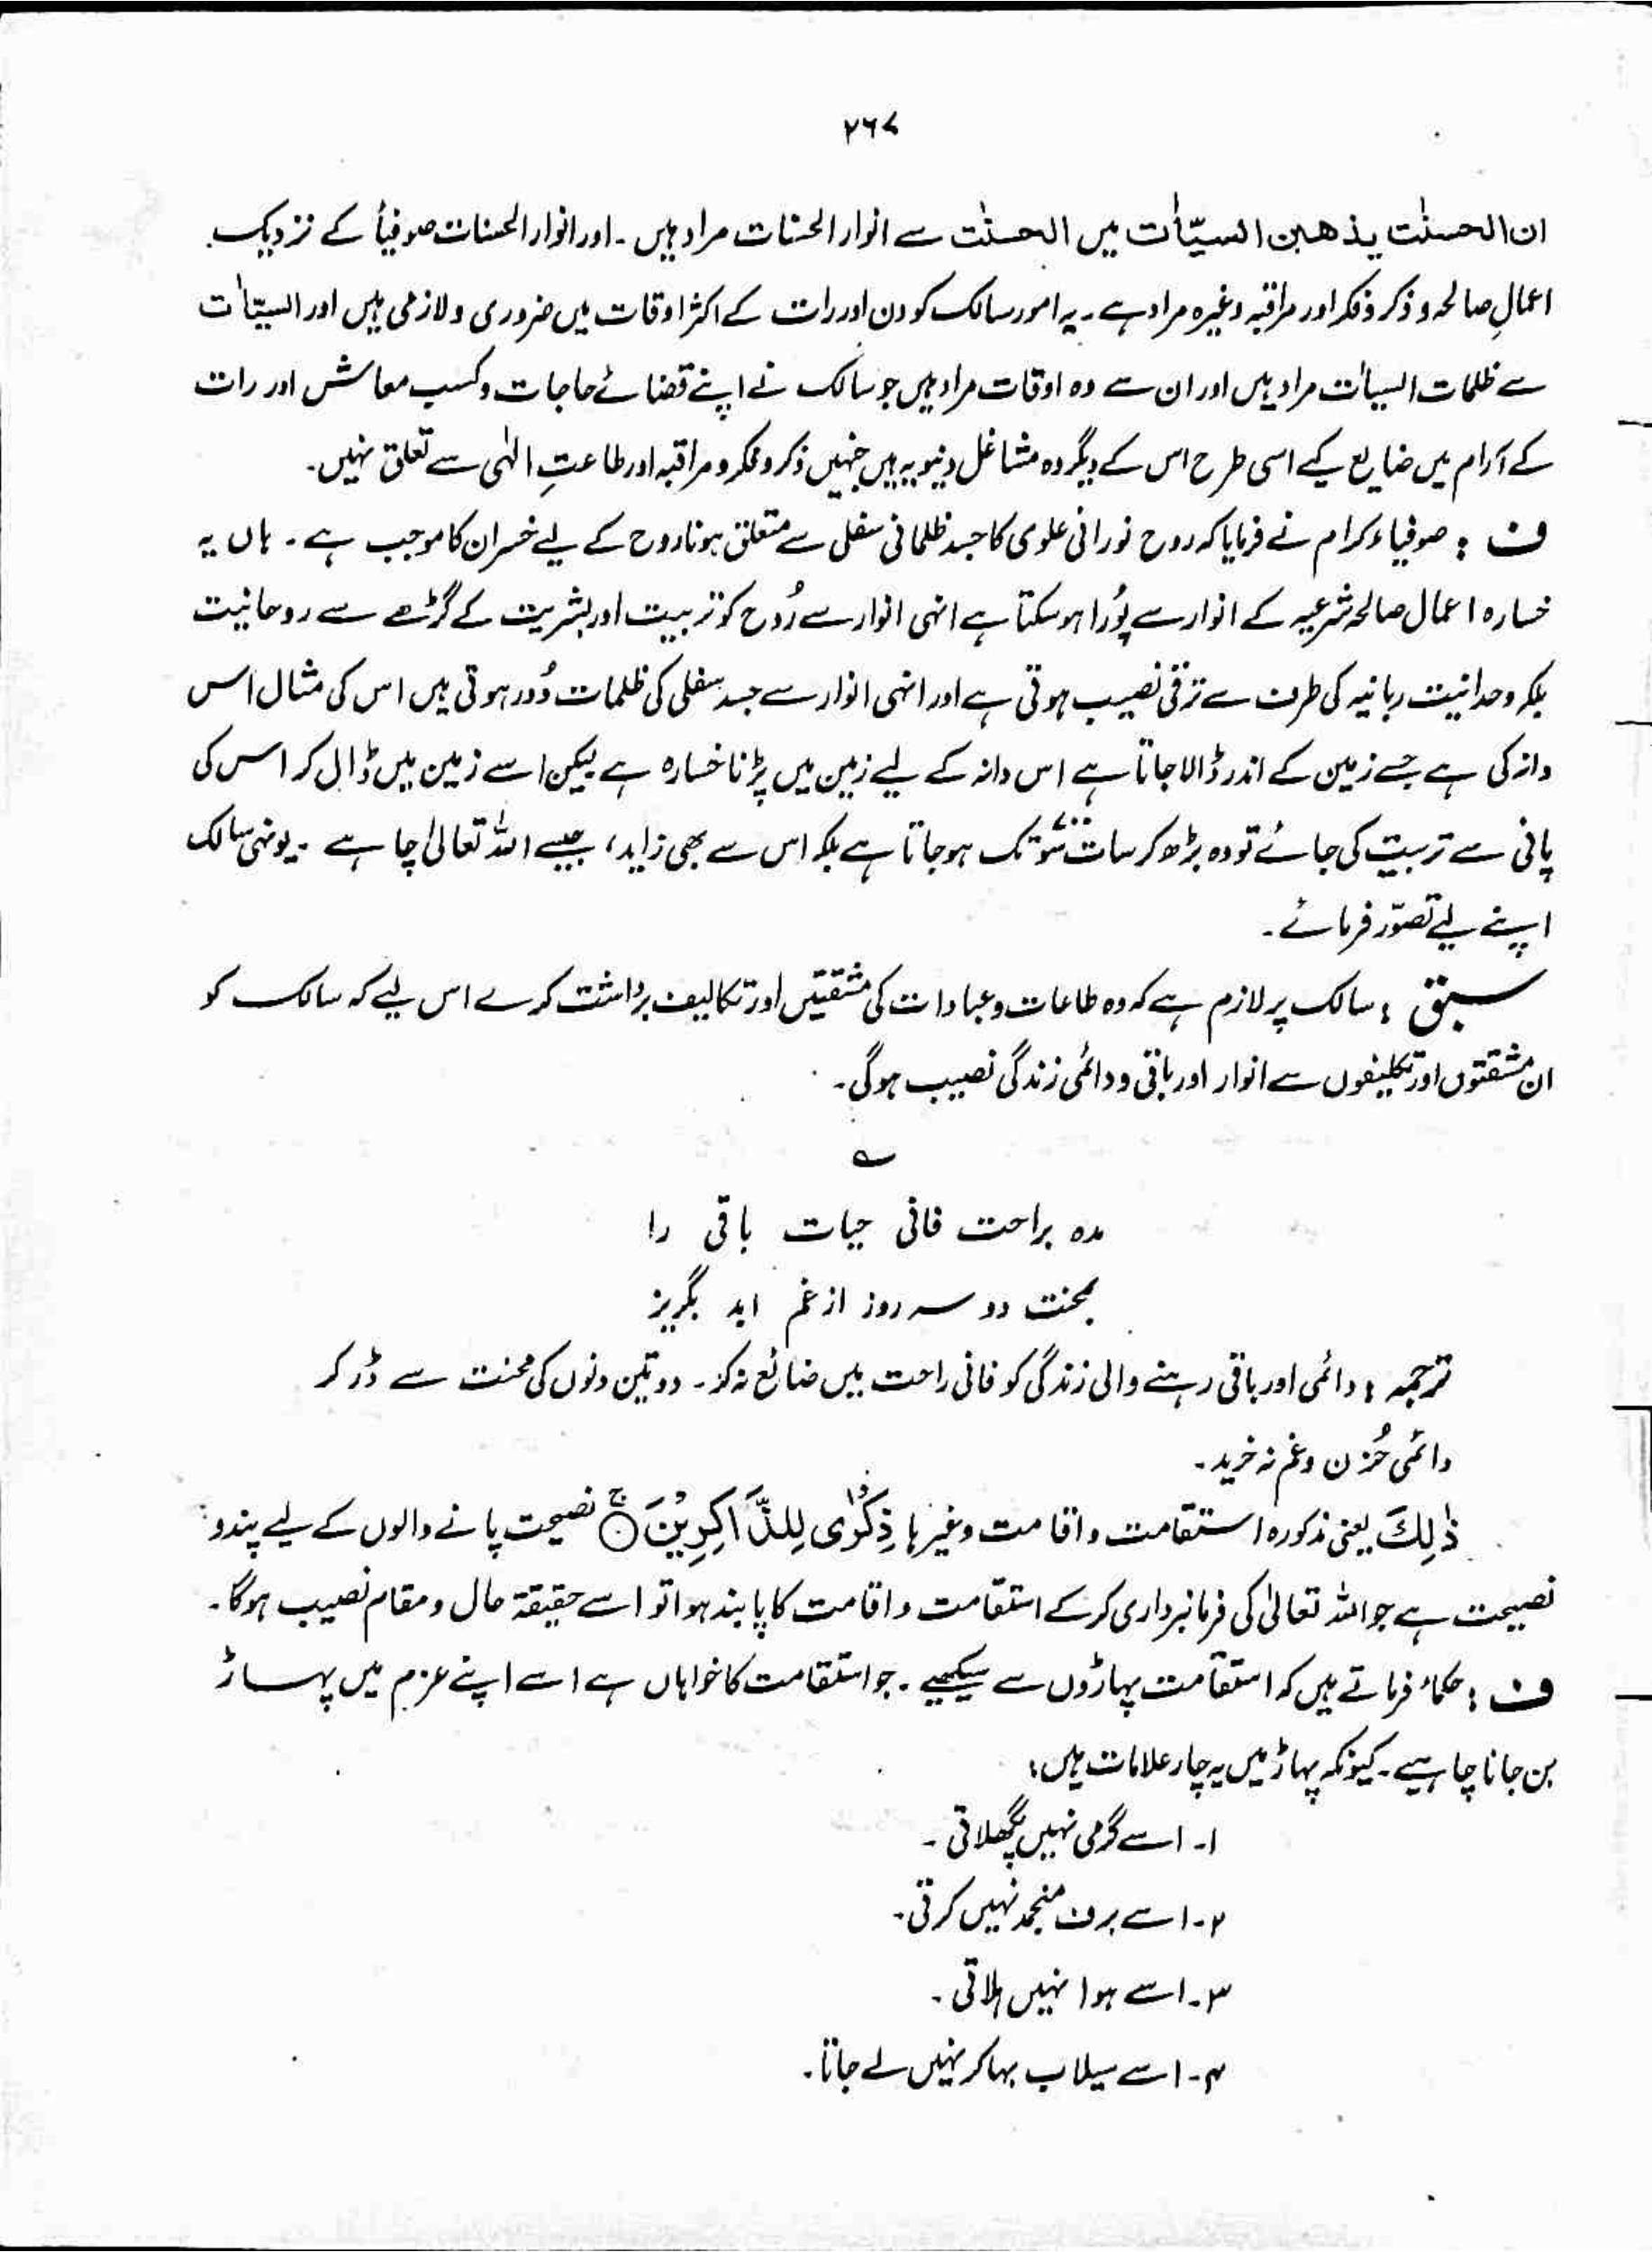 ۲۶۷
ان الحسنٰت یذھبن السیّاٰت میں الحسنٰت سے انوار الحسنات مراد ہیں۔ اور انوار الحسنات صوفیاً کے نزدیک
اعمالِ صالحہ و ذکر و فکر اور مراقبہ وغیرہ مراد ہے۔ یہ امور سالک کو دن اور رات کے اکثر اوقات میں ضروری و لازمی ہیں اور السیّاٰت
سے ظلمات السیاٰت مراد ہیں اور ان سے وہ اوقات مراد ہیں جو سالک نے اپنے قضائے حاجات و کسب معاش اور رات
کے آرام میں ضایع کیے اسی طرح اس کے دیگر وہ مشاغل دنیویہ ہیں جنہیں ذکر و فکر و مراقبہ اور طاعتِ الٰہی سے تعلق نہیں۔
ف : صوفیاء کرام نے فرمایا کہ روح نورانی علوی کا جسد ظلمانی سفلی سے متعلق ہونا روح کے لیے خسران کا موجب ہے۔ ہاں یہ
خسارہ اعمال صالحہ شرعیہ کے انوار سے پُورا ہو سکتا ہے انہی انوار سے رُوح کو تربیت اور بشریت کے گڑھے سے روحانیت
بلکہ وحدانیت ربانیہ کی طرف سے ترقی نصیب ہوتی ہے اور انہی انوار سے جسد سفلی کی ظلمات دُور ہوتی ہیں اس کی مثال اس
دانہ کی ہے جسے زمین کے اندر ڈالا جاتا ہے اس دانہ کے لیے زمین میں پڑنا خسارہ ہے لیکن اسے زمین میں ڈال کر اس کی
پانی سے تربیت کی جائے تو وہ بڑھ کر سات سَو ۷۰۰ تک ہو جاتا ہے بلکہ اس سے بھی زاید، جیسے اللہ تعالیٰ چاہے۔ یونہی سالک
اپنے لیے تصوّر فرمائے۔
سبق : سالک پر لازم ہے کہ وہ طاعات و عبادات کی مشقتیں اور تکالیف برداشت کرے اس لیے کہ سالک کو
ان مشقتوں اور تکلیفوں سے انوار اور باقی و دائمی زندگی نصیب ہوگی۔
؎
مدہ براحت فانی حیات باقی را
بمحنت دو سہ روز از غم ابد بگریز
ترجمہ : دائمی اور باقی رہنے والی زندگی کو فانی راحت میں ضائع نہ کر۔ دو تین دنوں کی محنت سے ڈر کر
دائمی حُزن و غم نہ خرید۔
ذٰلِكَ یعنی مذکورہ استقامت و اقامت وغیرہا ذِكْرٰى لِلذّٰاكِرِيْنَ ۝ۚ نصیحت پانے والوں کے لیے پند و
نصیحت ہے جو اللہ تعالیٰ کی فرمانبرداری کر کے استقامت و اقامت کا پابند ہوا تو اسے حقیقۃ حال و مقام نصیب ہوگا۔
ف : حکماء فرماتے ہیں کہ استقامت پہاڑوں سے سیکھیے۔ جو استقامت کا خواہاں ہے اسے اپنے عزم میں پہاڑ
بن جانا چاہیے۔ کیونکہ پہاڑ میں یہ چار علامات ہیں:
۱۔ اسے گرمی نہیں پگھلاتی۔
۲۔ اسے برف منجمد نہیں کرتی۔
۳۔ اسے ہوا نہیں ہلاتی۔
۴۔ اسے سیلاب بہا کر نہیں لے جاتا۔